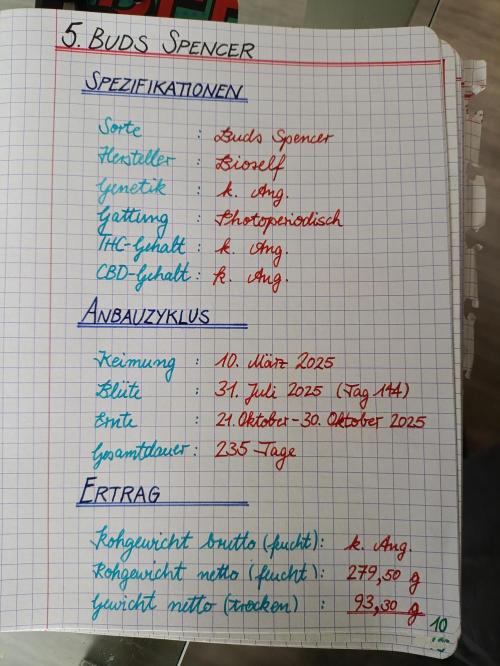 5. BUDS SPENCER
SPEZIFIKATIONEN
Sorte : Buds Spencer
Hersteller : Bioself
Genetik : k. Ang.
Gattung : Photoperiodisch
THC-Gehalt : k. Ang.
CBD-Gehalt : k. Ang.
ANBAUZYKLUS
Keimung : 10. März 2025
Blüte : 31. Juli 2025 (Tag 144)
Ernte : 21. Oktober - 30. Oktober 2025
Gesamtdauer : 235 Tage
ERTRAG
Rohgewicht brutto (feucht) : k. Ang.
Rohgewicht netto (feucht) : 279,50 g
Gewicht netto (trocken) : 93,30 g
10